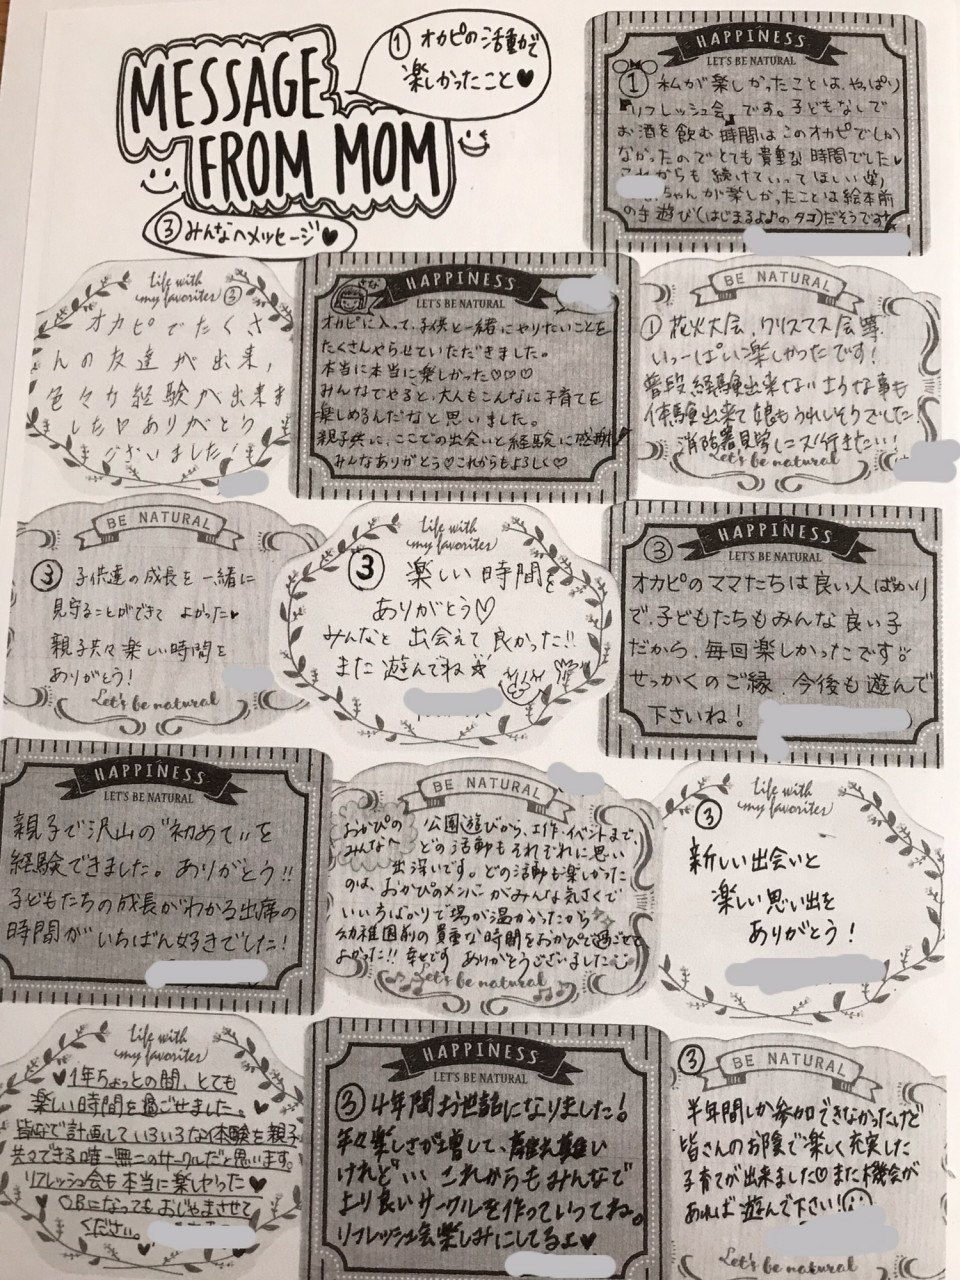 MESSAGE
FROM MOM
① オカピの活動で
楽しかったこと♥
③ みんなへメッセージ♥
HAPPINESS
LET'S BE NATURAL
① 私が楽しかったことは、やっぱり
『リフレッシュ会』です。子どもなしで
お酒を飲む時間はこのオカピでしか
なかったのでとても貴重な時間でした♥
これからも続けていってほしい
ちゃんが楽しかったことは絵本前
の手遊び(はじまるよ♪のタコ)だそうです
Life with
my favorites ③
オカピでたくさ
んの友達が出来,
色々な経験が出来ま
した♡ありがとう
ございました!
HAPPINESS
LET'S BE NATURAL
オカピに入って、子供と一緒にやりたいことを
たくさんやらせていただきました。
本当に本当に楽しかった♡♡♡
みんなでやると、大人もこんなに子育てを
楽しめるんだなと思いました。
親子共に、ここでの出会いと経験に感謝!
みんなありがとう♡これからもよろしく♡
BE NATURAL
① 花火大会、クリスマス会等
いっーぱい楽しかったです!
普段経験出来ないような事も
体験出来て娘もうれしそうでした!
消防署見学シニーズ行きたい!
Let's be natural
BE NATURAL
③ 子供達の成長を一緒に
見守ることができて よかった♥
親子共々楽しい時間を
ありがとう!
Let's be natural
Life with
my favorites
③ 楽しい時間を
ありがとう♡
みんなと出会えて良かった!!
また遊んでね☆
HAPPINESS
LET'S BE NATURAL
③
オカピのママたちは良い人ばかり
で、子どもたちもみんな良い子
だから、毎回楽しかったです
せっかくのご縁、今後も遊んで
下さいね!
HAPPINESS
LET'S BE NATURAL
親子で沢山の"初めて"を
経験できました。ありがとう!!
子どもたちの成長がわかる出席の
時間が いちばん好きでした!
BE NATURAL
おかぴの
みんなへ
公園遊びから、工作・イベントまで、
どの活動もそれぞれに思い
出深いです。どの活動も楽しかった
のは、おかぴのメンバーがみんな気さくで
いい人ばかりで場が温かかったから
幼稚園前の貴重な時間をおかぴで過ごせて
よかった!! 幸せです ありがとうございました
Let's be natural
Life with
my favorites
③
新しい出会いと
楽しい思い出を
ありがとう!
Life with
my favorites
♥1年ちょっとの間、とても
楽しい時間を過ごせました。♥
皆で計画していろいろな体験を親子
共々できる唯一無二のサークルだと思います。
リフレッシュ会も本当に楽しかった♥
OBになってもおじゃまさせて
ください。♥
HAPPINESS
LET'S BE NATURAL
③ 4年間お世話になりました!
年々楽しさが増して、離れ難い
けれど… これからもみんなで
より良いサークルを作っていってね。
リフレッシュ会楽しみにしてるよ♥
BE NATURAL
③
半年間しか参加できなかったけど
皆さんのお陰で楽しく充実した
子育てが出来ました♡また機会が
あれば遊んで下さい!
Let's be natural